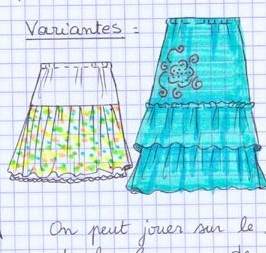 Variantes :
On peut jouer sur le